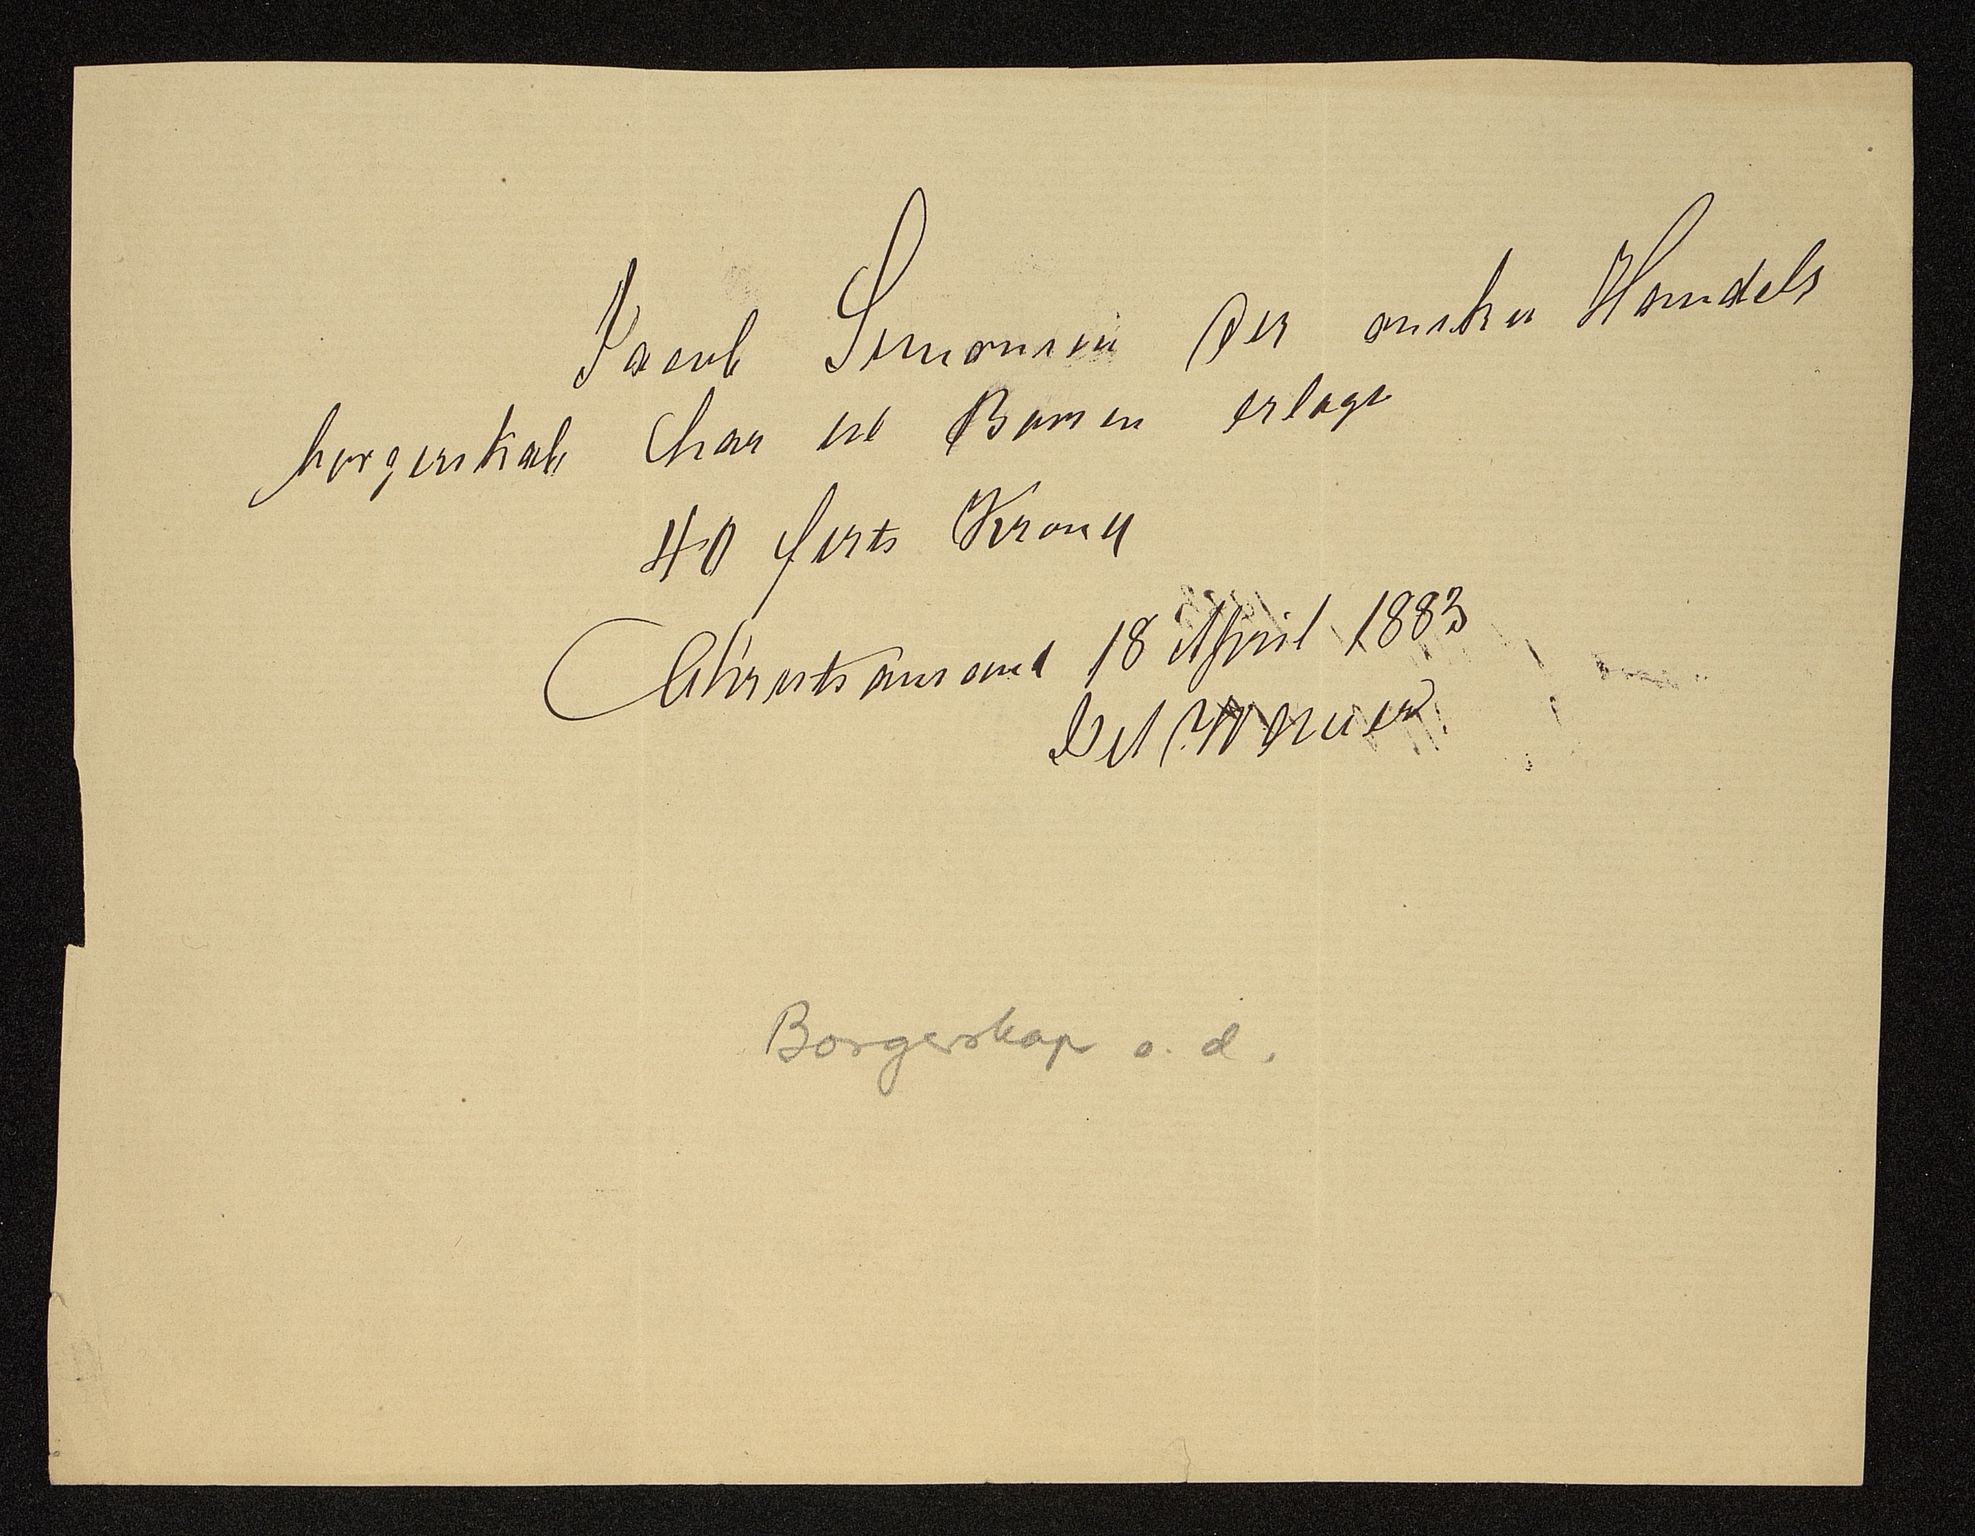 Jacob Simonsen der onsker Handels
borgerskab har til Bassen erlagt
40 firts Kroner
Christiansand 18 April 1883
Borgerskap o. d.